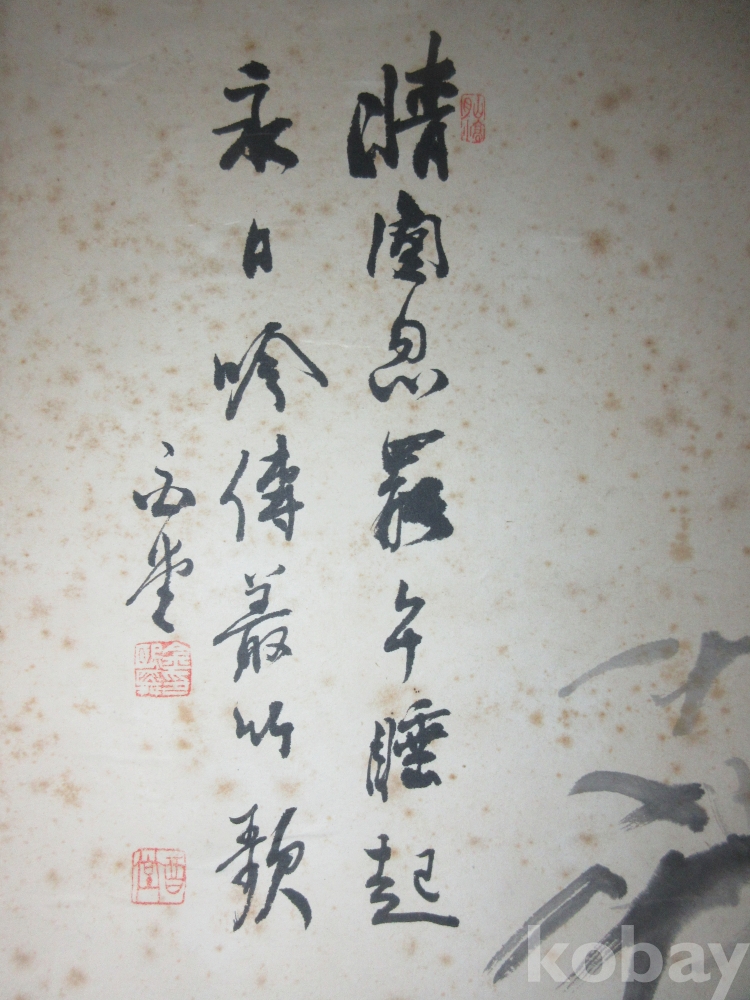 晴窗罷午睡起
永日吟傳叢竹歌
酉堂
kobay